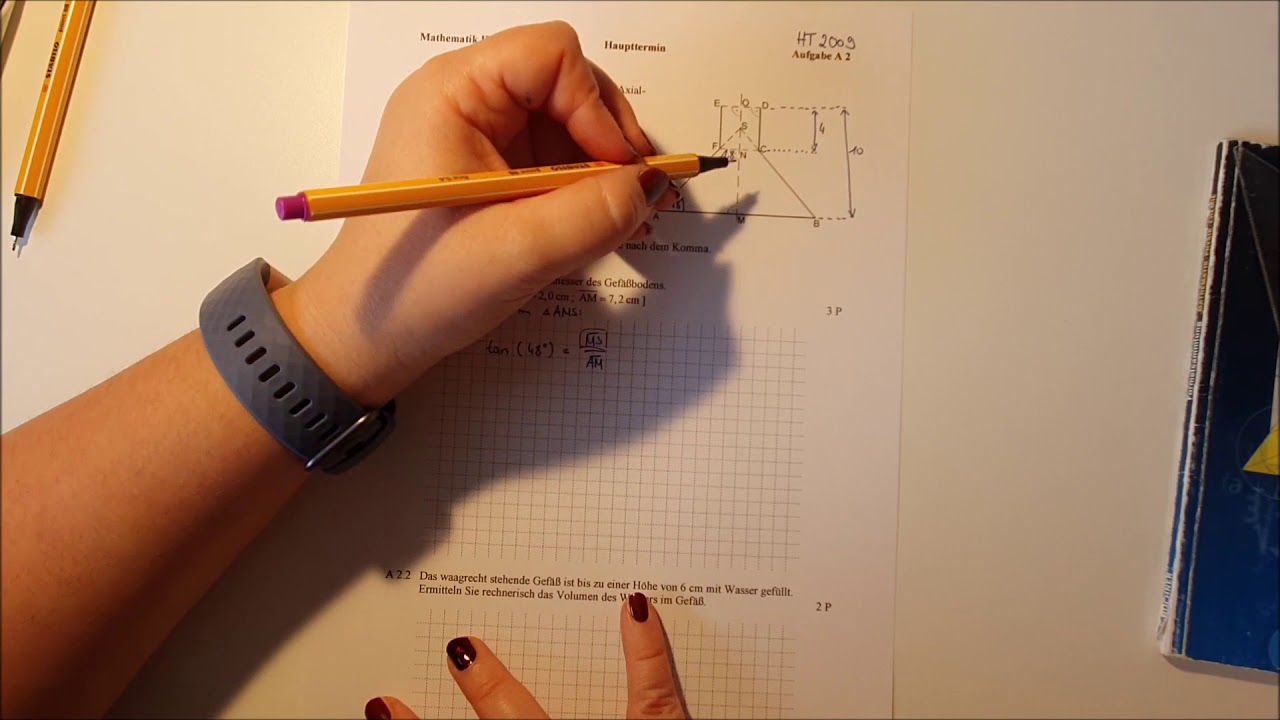 Mathematik
Haupttermin
HT 2009
Aufgabe A 2
Axial-
E Q D
S
4
F N C
10
A M B
nach dem Komma.
des Gefäßbodens.
2,0 cm ; AM = 7,2 cm ]
3 P
△AMS:
tan (48°) = MS
AM
A 2.2 Das waagrecht stehende Gefäß ist bis zu einer Höhe von 6 cm mit Wasser gefüllt.
Ermitteln Sie rechnerisch das Volumen des im Gefäß.
2 P
STABILO